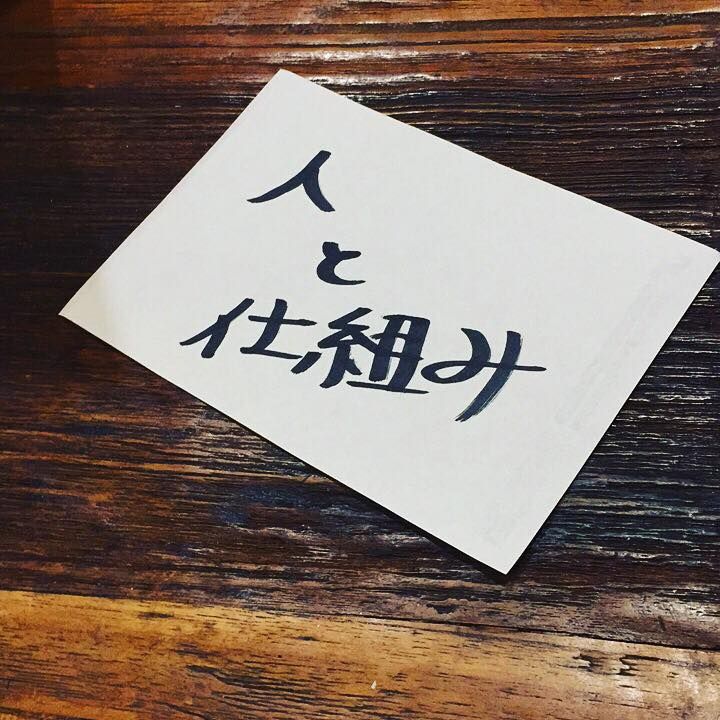 人
と
仕組み